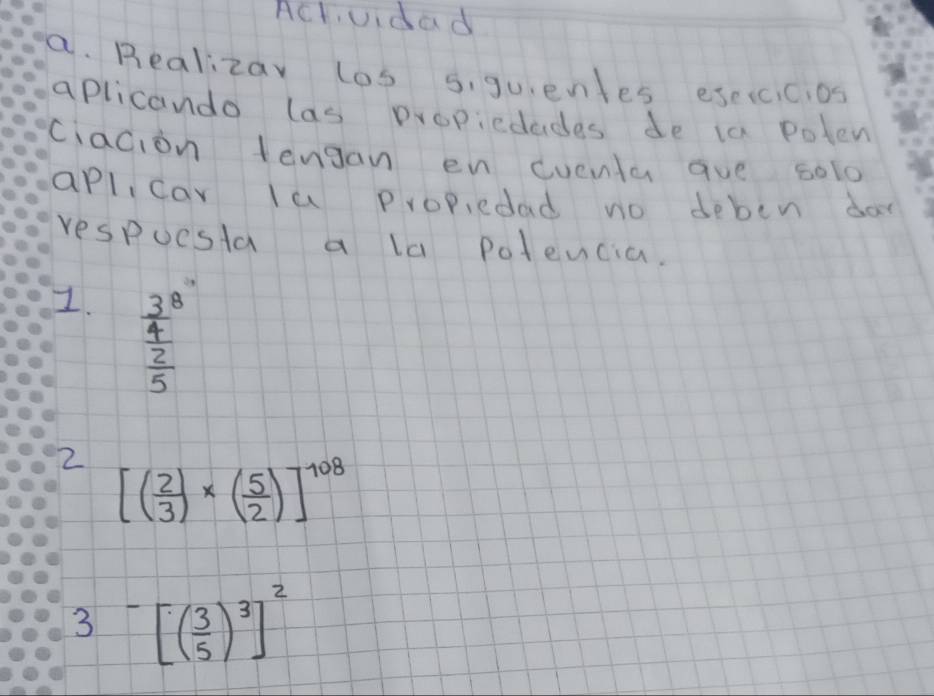 Actividad
a. Realizar los siguientes esercicios
aplicando las propiedades de la poten
ciación tengan en cuenta que solo
aplicar la propiedad no deben dar
respuesta a la potencia.
1. 3^8
4
2
5
2 [(2/3) × (5/2)]^108
3 -[(3/5)^3]^2